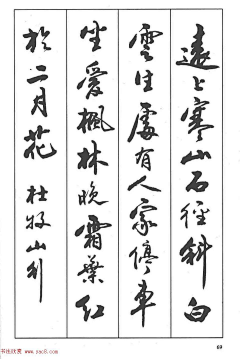 遠上寒山石徑斜白
雲生處有人家停車
坐愛楓林晚霜葉紅
於二月花 杜牧山行
69